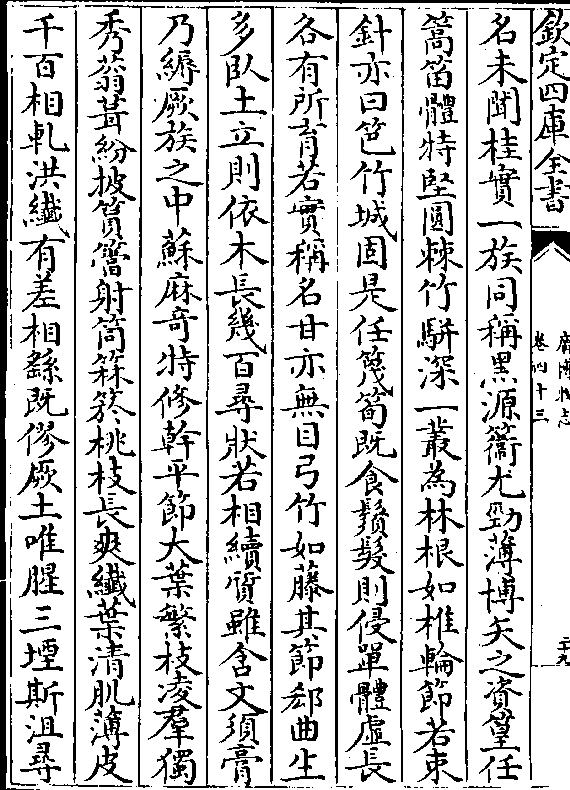 欽定四庫全書
廣博物志
卷四十三
二十九
名未聞桂實一族同稱異源䉛尤勁薄博矢之資篁任
篙笛體特堅圓棘竹駢深一叢為林根如椎輪節若束
針亦曰笆竹城固是任篾筍既食鬚髮則侵單體虛長
各有所育若實稱名甘亦無目弓竹如藤其節郄曲生
多臥土立則依木長幾百尋狀若相續質雖含文須膏
乃縟厥族之中蘇麻奇特修幹平節大葉繁枝凌羣獨
秀蓊茸紛披筼簹射筒箖箊桃枝長爽纖葉清肌薄皮
千百相軋洪纖有差相繇既僇厥土唯腥三堙斯沮尋